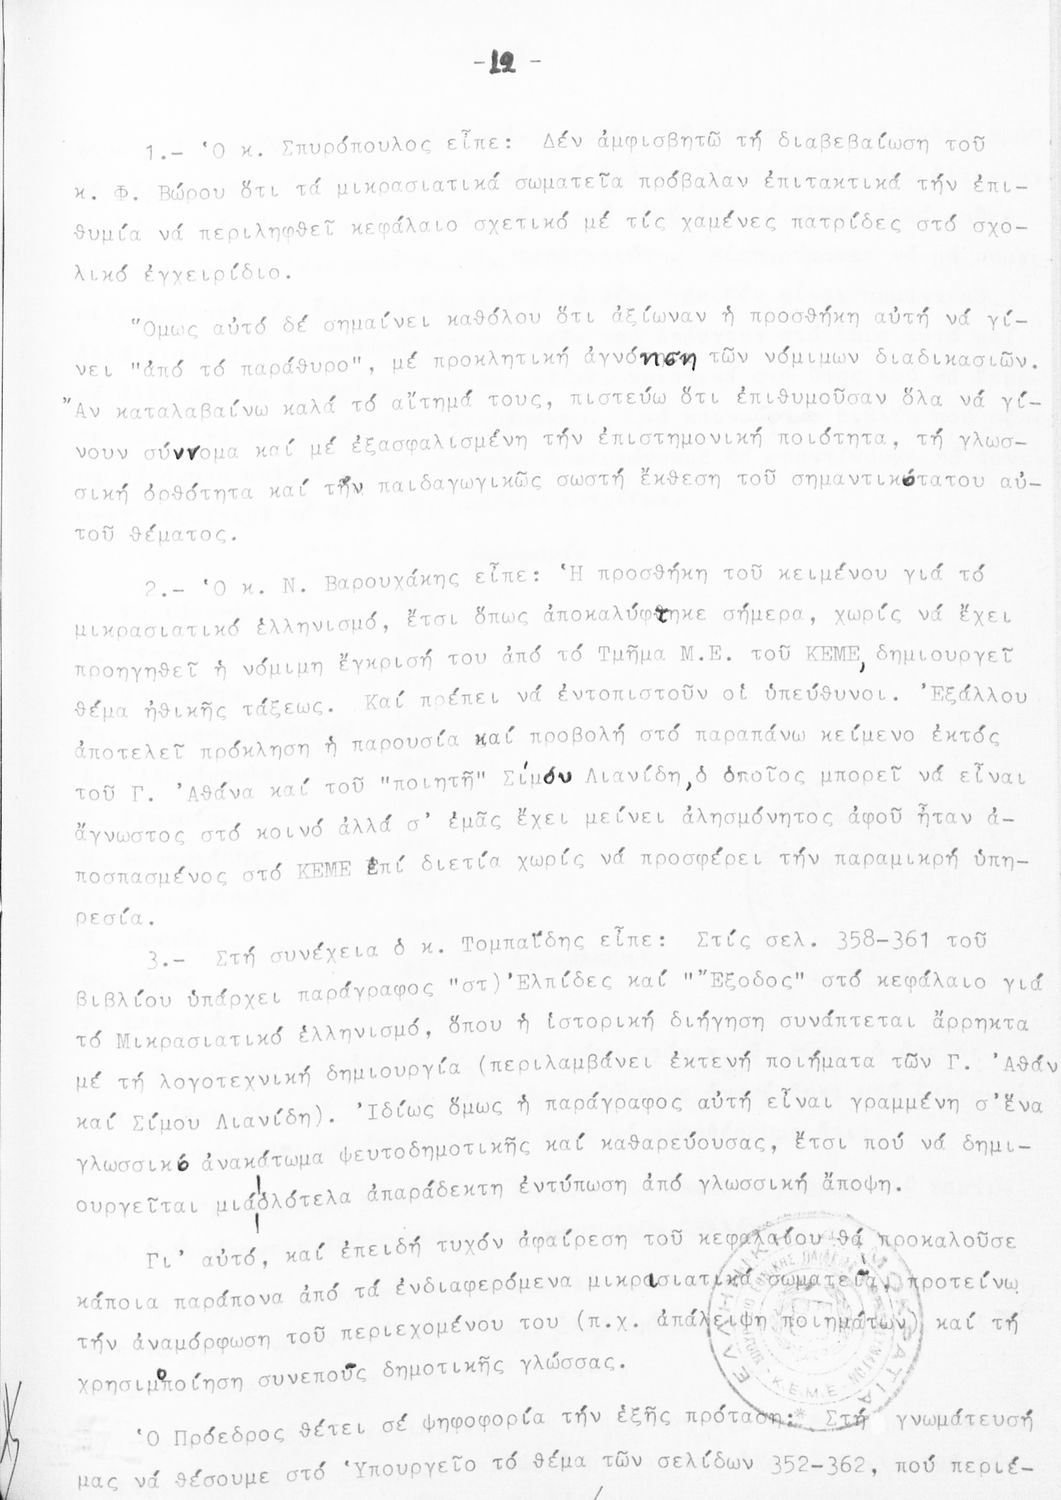 -12-
1.- Ὁ κ. Σπυρόπουλος εἶπε: Δέν ἀμφισβητῶ τή διαβεβαίωση τοῦ
κ. Φ. Βώρου ὅτι τά μικρασιατικά σωματεῖα πρόβαλαν ἐπιτακτικά τήν ἐπι-
θυμία νά περιληφθεῖ κεφάλαιο σχετικό μέ τίς χαμένες πατρίδες στό σχο-
λικό ἐγχειρίδιο.
Ὅμως αὐτό δέ σημαίνει καθόλου ὅτι ἀξίωναν ἡ προσθήκη αὐτή νά γί-
νει "ἀπό τό παράθυρο", μέ προκλητική ἀγνόηση τῶν νόμιμων διαδικασιῶν.
Ἄν καταλαβαίνω καλά τό αἴτημά τους, πιστεύω ὅτι ἐπιθυμοῦσαν ὅλα νά γί-
νουν σύννομα καί μέ ἐξασφαλισμένη τήν ἐπιστημονική ποιότητα, τή γλωσ-
σική ὀρθότητα καί τήν παιδαγωγικῶς σωστή ἔκθεση τοῦ σημαντικότατου αὐ-
τοῦ θέματος.
2.- Ὁ κ. Ν. Βαρουχάκης εἶπε: Ἡ προσθήκη τοῦ κειμένου γιά τό
μικρασιατικό ἑλληνισμό, ἔτσι ὅπως ἀποκαλύφτηκε σήμερα, χωρίς νά ἔχει
προηγηθεῖ ἡ νόμιμη ἔγκρισή του ἀπό τό Τμῆμα Μ.Ε. τοῦ ΚΕΜΕ, δημιουργεῖ
θέμα ἠθικῆς τάξεως. Καί πρέπει νά ἐντοπιστοῦν οἱ ὑπεύθυνοι. Ἐξάλλου
ἀποτελεῖ πρόκληση ἡ παρουσία καί προβολή στό παραπάνω κείμενο ἐκτός
τοῦ Γ. Ἀθάνα καί τοῦ "ποιητῆ" Σίμου Λιανίδη, ὁ ὁποῖος μπορεῖ νά εἶναι
ἄγνωστος στό κοινό ἀλλά σ' ἐμᾶς ἔχει μείνει ἀλησμόνητος ἀφοῦ ἦταν ἀ-
ποσπασμένος στό ΚΕΜΕ ἐπί διετία χωρίς νά προσφέρει τήν παραμικρή ὑπη-
ρεσία.
3.- Στή συνέχεια ὁ κ. Τομπαΐδης εἶπε: Στίς σελ. 358-361 τοῦ
βιβλίου ὑπάρχει παράγραφος "στ) Ἐλπίδες καί "Ἔξοδος" στό κεφάλαιο γιά
τό Μικρασιατικό ἑλληνισμό, ὅπου ἡ ἱστορική διήγηση συνάπτεται ἄρρηκτα
μέ τή λογοτεχνική δημιουργία (περιλαμβάνει ἐκτενή ποιήματα τῶν Γ. Ἀθάν
καί Σίμου Λιανίδη). Ἰδίως ὅμως ἡ παράγραφος αὐτή εἶναι γραμμένη σ' ἕνα
γλωσσικό ἀνακάτωμα ψευτοδημοτικῆς καί καθαρεύουσας, ἔτσι πού νά δημι-
ουργεῖται μιά ὁλότελα ἀπαράδεκτη ἐντύπωση ἀπό γλωσσική ἄποψη.
Γι' αὐτό, καί ἐπειδή τυχόν ἀφαίρεση τοῦ κεφαλαίου θά προκαλοῦσε
κάποια παράπονα ἀπό τά ἐνδιαφερόμενα μικρασιατικά σωματεῖα, προτείνω
τήν ἀναμόρφωση τοῦ περιεχομένου του (π.χ. ἀπάλειψη ποιημάτων) καί τή
χρησιμοποίηση συνεποῦς δημοτικῆς γλώσσας.
Ὁ Πρόεδρος θέτει σέ ψηφοφορία τήν ἑξῆς πρόταση: Στή γνωμάτευσή
μας νά θέσουμε στό Ὑπουργεῖο τό θέμα τῶν σελίδων 352-362, πού περιέ-
ΕΛΛΗΝΙΚΗ ΔΗΜΟΚΡΑΤΙΑ
Κ.Ε.Μ.Ε.